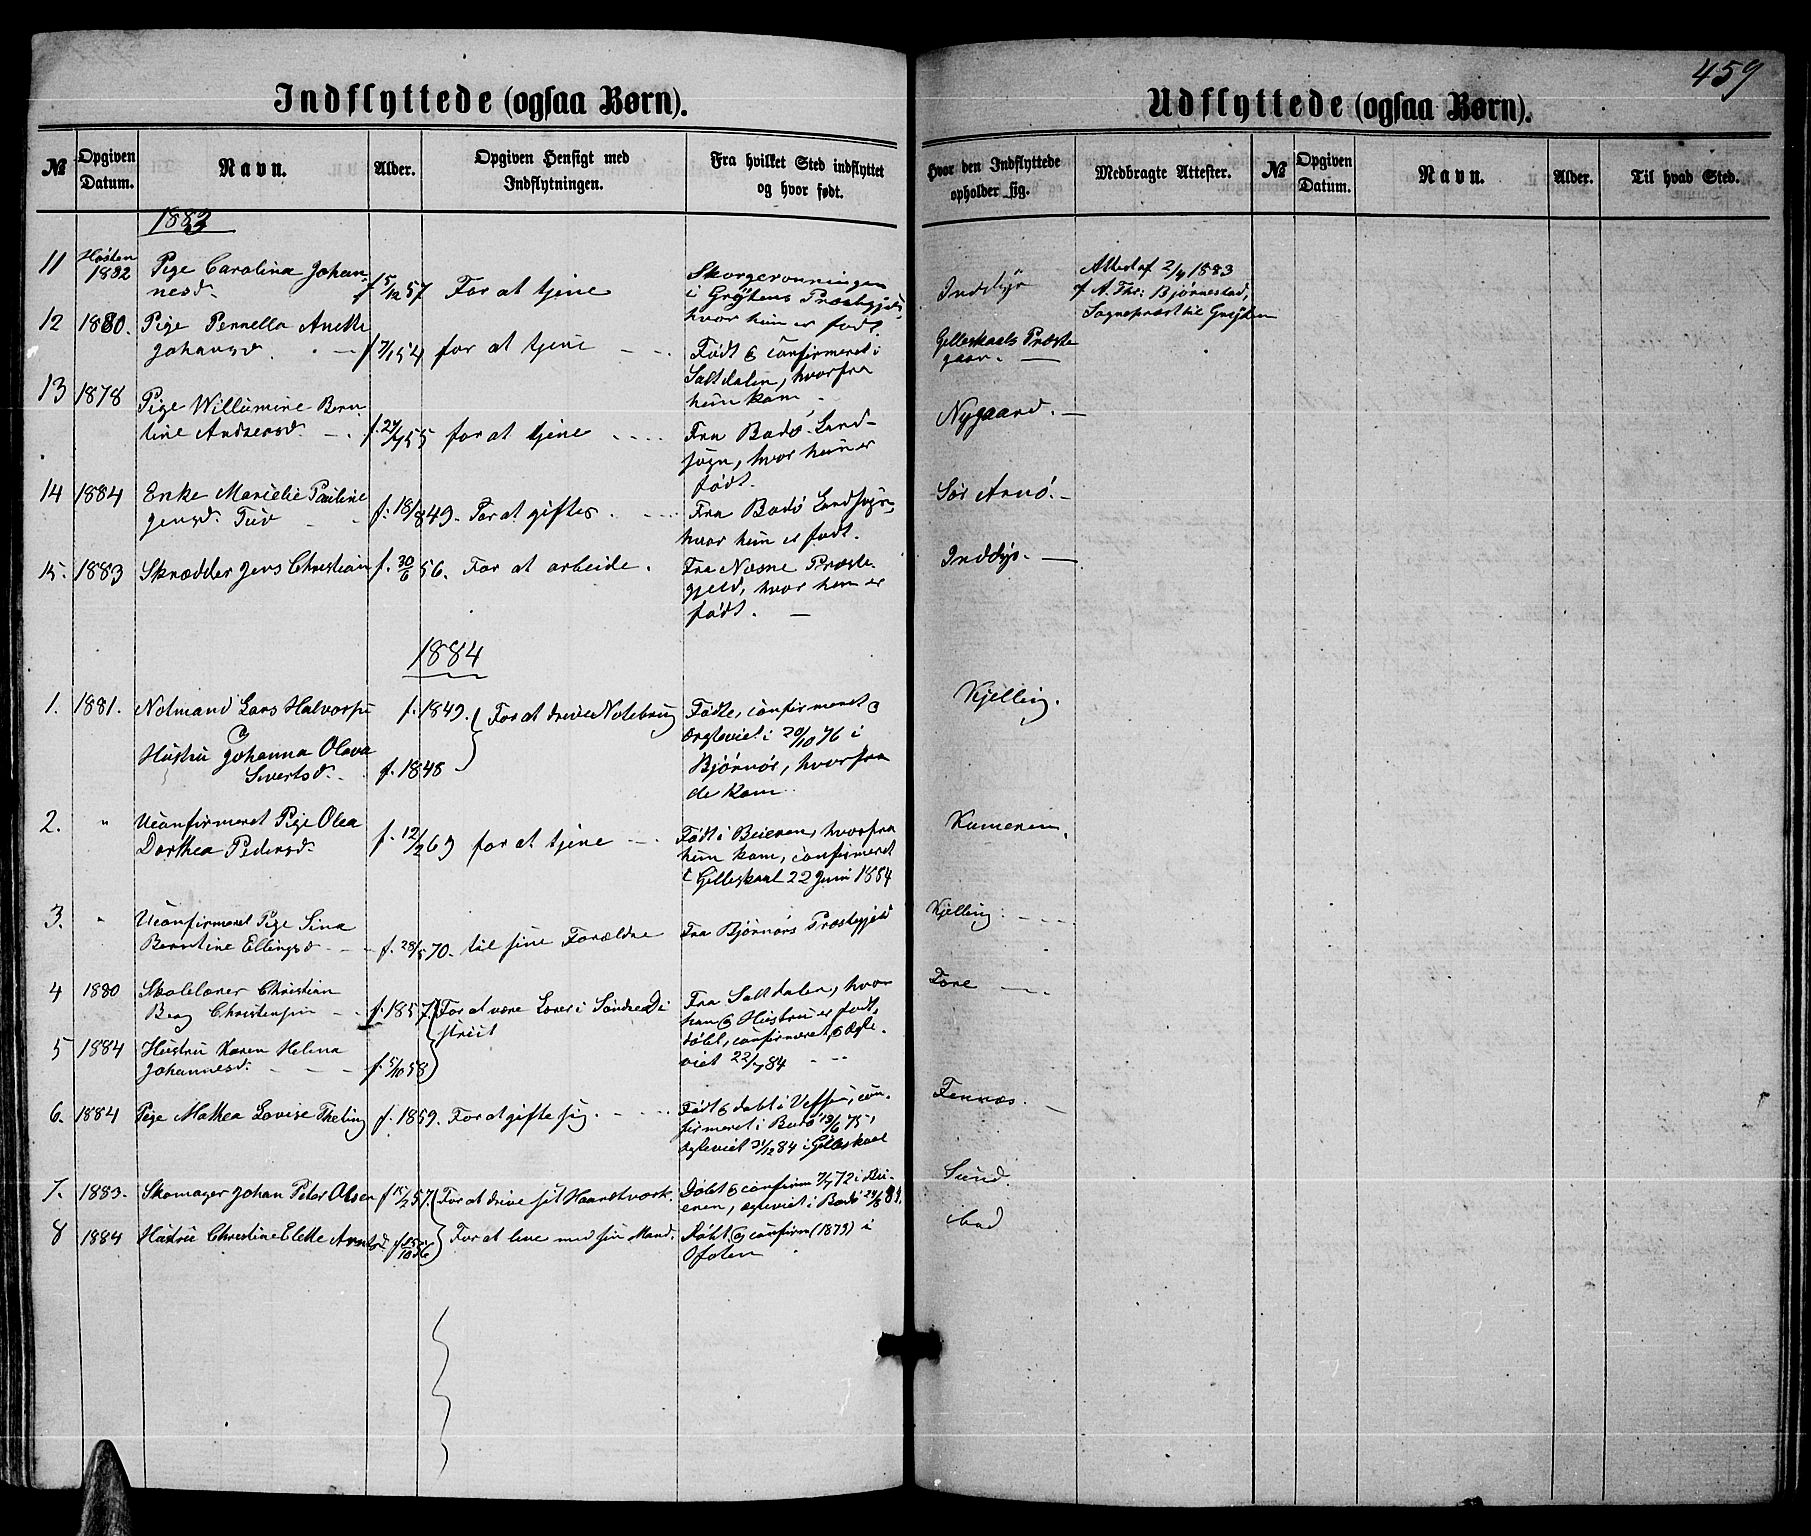 459
Indflyttede (ogsaa Børn).
Udflyttede (ogsaa Børn).
№ Opgiven Datum. Navn. Alder. Opgiven Hensigt med Indflytningen. Fra hvilket Sted indflyttet og hvor født.
Hvor den Indflyttede opholder sig. Medbragte Attester. № Opgiven Datum. Navn. Alder. Til hvad Sted.
1883
11 Høsten 1882 Pige Carolina Johan-
nesd. f. 5/12 57 For at tjene
i Grytens Præstegjeld,
hvor hun er født.
Inddyr
Attest af 2/4 1883
af A. Thr: Bjørnestad,
Sognepræst til Gryten
12 1880. Pige Pernella Anette
Johansd. f 7/1 54 for at tjene
Født & confirmeret i
Saltdalen, hvorfra
hun kom.
Gilleskaals Præste
gaar.
13 1878 Pige Willumine Bern-
tine Andersd. f. 29/4 55 for at tjene
Fra Bodø Land-
sogn, hvor hun er
født.
Nygaard.
14 1884 Enke Marielie Pauline
Jensd. Tuv f. 18/8 49. For at giftes.
Fra Bodø Landsogn,
hvor hun er født.
Sør Arnø.
15. 1883 Skrædder Jens Christian f. 30/6 56. For at arbeide.
Fra Næsne Præste-
gjeld, hvor han er
født.
Inddyr.
1884
1. 1881. Notmand Lars Halvorsen f. 1849. For at drive Notebrug
&
Hustru Johanna Olava
Sivertsd. f. 1848
Fødte, confirmeret &
ægteviet i 20/10 76 i
Bjørnør, hvorfra
de kom.
Kjelling.
2. " Uconfirmeret Pige Olea
Dorthea Pedersd. f. 12/2 69 for at tjene
Født i Beieren, hvorfra
hun kom, confirmeret
i Gilleskaal 22 Juni 1884
3. " Uconfirmeret Pige Sina
Berntine Ellingsd f. 28/5 70. til sine Forældre
Fra Bjørnørs Præstegjeld
Kjelling.
4 1880 Skolelærer Christian
Berg Christensen f. 1857 For at være Lærer i Søndre Di
strict
Fra Saltdalen, hvor
han & Hustru er født,
døbt, confirmeret & ægte-
viet 22/7 84
Fore
5 1884 Hustru Karen Helena
Johannesd. f. 5/10 58
6. 1884 Pige Mathea Lovise Theling f. 1859. For at gifte sig.
Født & døbt i Vefsen, con-
firmeret i Bodø 13/6 75,
ægteviet 31/12 84 i Gilleskaal
Fennæs.
7. 1883. Skomager Johan Peter Olsen f 15/2 57. For at drive sit Haandtværk.
Døbt & confirm 7/7 72 i Bei-
eren, ægteviet i Bodø 24/8 84.
Sund.
8 1884 Hustru Christine Elette Arntsd f 15/10 56 For at leve med sin Mand.
Døbt & confirm (1873) i
Ofoten
ibid